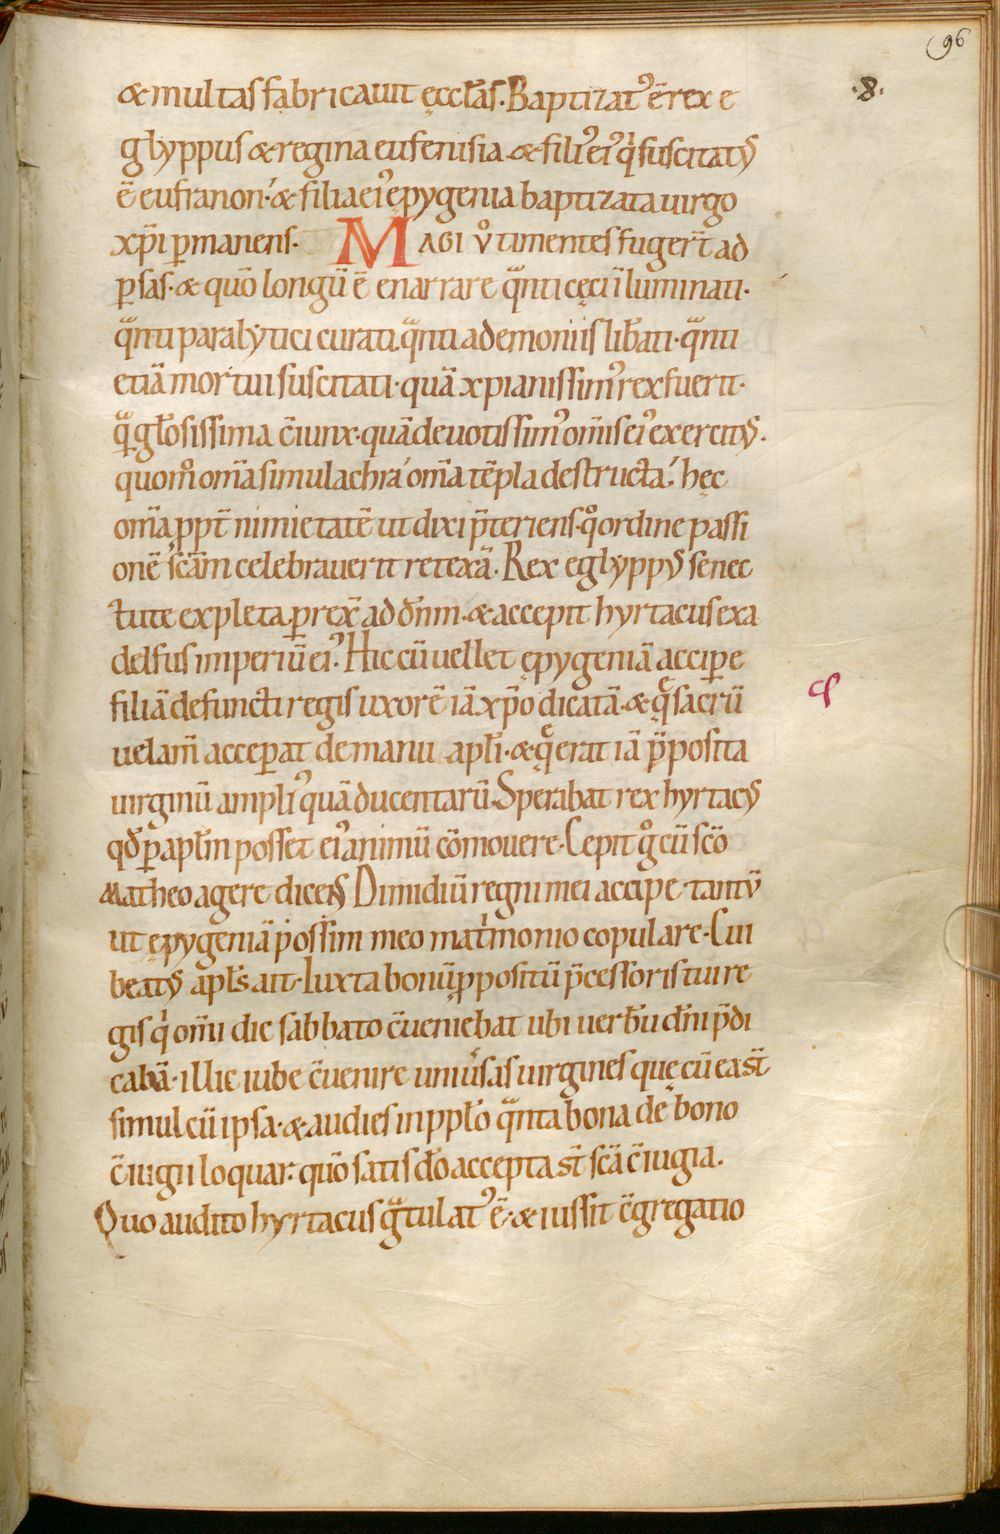 96
·8·
& multas fabricauit ęccłas. Baptizat᾿ ē rex e
glyppus & regina eufenisia & fili᾿ ei᾿ q̇ suscitatꝰ
ē eufranon · & filia ei᾿ epygenia baptizata uirgo
xp̄i ꝑmanens · MAGI v̊ timentes fuger̄t ad
ꝑsas · & quō longū ē enarrare qͣnti cęci īluminati ·
qͣnti paralytici curati · qͣnti a demoniis libati · qͣnti
etiā mortui suscitati · quā xp̄ianissim᾿ rex fuerit ·
qͣ głosissima c̄iunx · quā deuotissim᾿ om̄is ei᾿ exercitꝰ .
quom̊ om̄a simulachra om̄a tēpla destructa · hęc
om̄a ppt̄ nimietatē ut dixi p̄teriens · qͦ ordine passi
onē sc̄am celebrauerit retexā . Rex eglyppꝰ senec
tute expleta ꝑrex̄ ad dn̄m · & accepit hyrtacus exa
delfus imperiū ei᾿ . Hic cū uellet ępygeniā acciꝑe
filiā defuncti regis uxorē iā xp̄o dicatā · & q̨ sacrū
uelam̄ acceꝑat de manu apłi · & q̨ erat iā p̄posita
uirginū ampli᾿ quā ducentarū . Sperabat rex hyrtacꝰ
qđ ꝑ apłm posset ei᾿ animū cōmouere · Cepit gͦ cū sc̄o
Matheo agere dicens Dimidiū regni mei accipe · tantū
ut ępygeniā possim meo matrimonio copulare · Cui
beatꝰ apłs ait · Iuxta bonū ꝓpositū p̄cessoris tui re
gis q̇ om̄i die sabbato c̄ueniebat ubi uerbū dn̄i p̄di
cabā · illic iube c̄uenire uniu̓sas uirgines quę cū ea st̄
simul cū ipsa · & audies in ppło qͣnta bona de bono
c̄iugii loquar · quō satis do̅ accepta st̄ sc̄a c̄iugia .
Quo audito hyrtacus gͣtulat᾿ ē · & iussit c̄gregatio